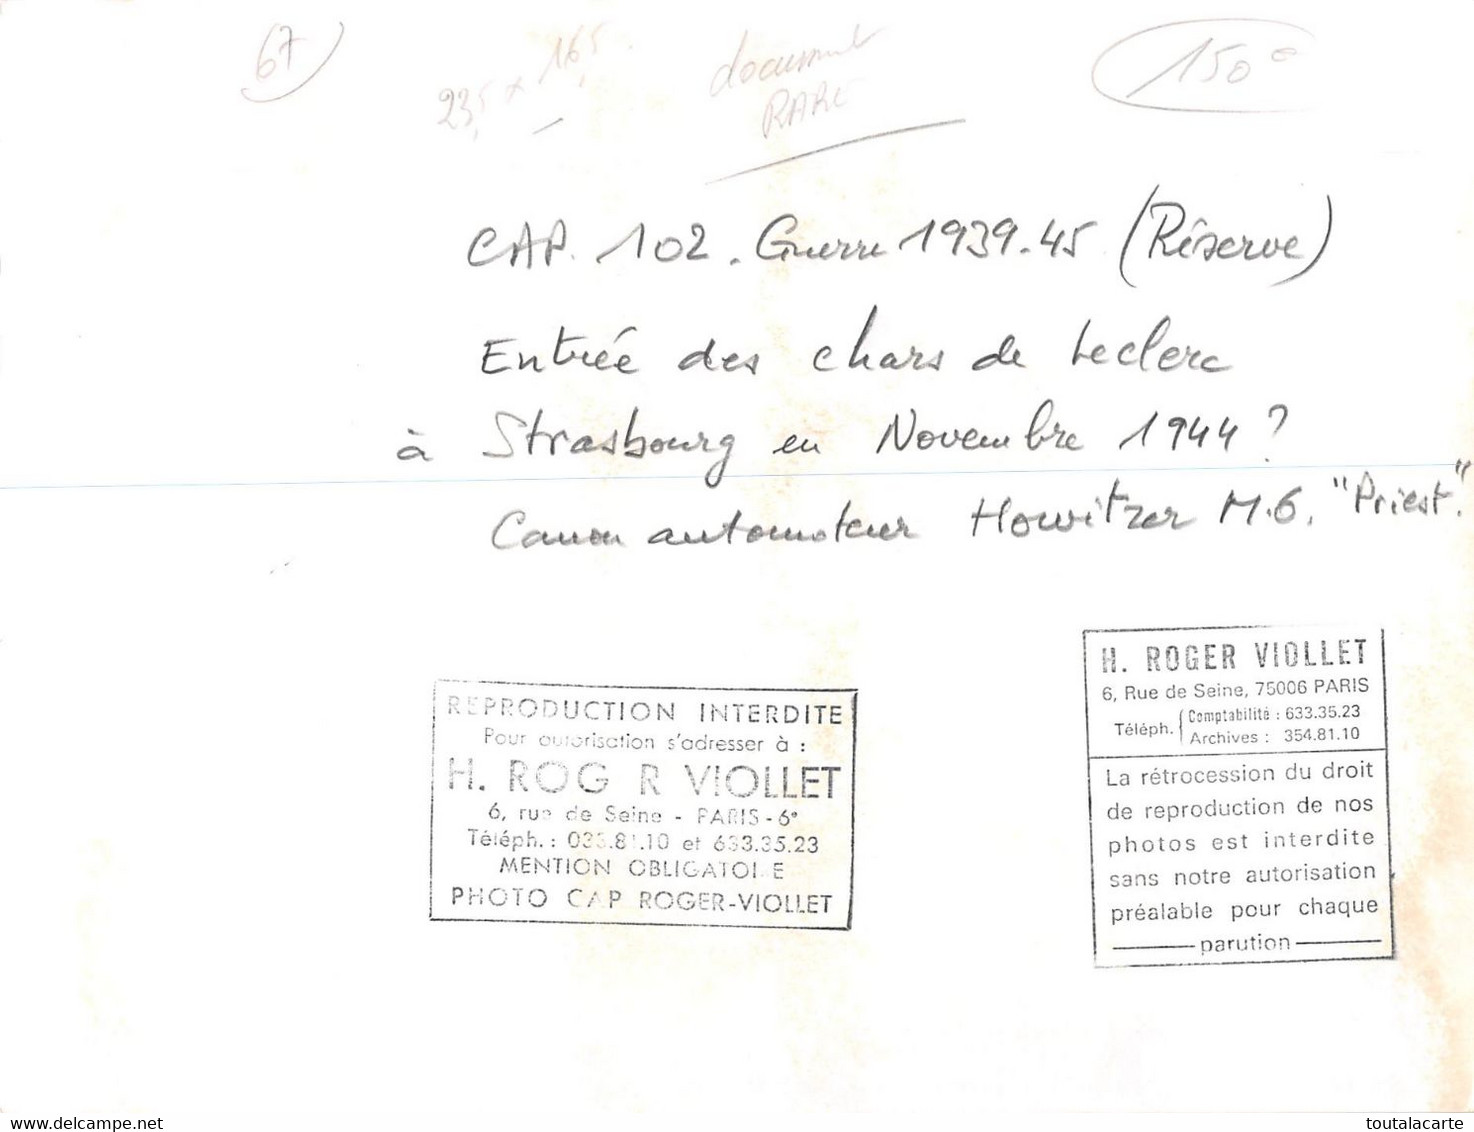 67)
23,5 x 16,5
document
RARE
150€
CAP. 102. Guerre 1939-45 (Réserve)
Entrée des chars de Leclerc
à Strasbourg en Novembre 1944 ?
Canon automoteur Howitzer M.6. "Priest".
REPRODUCTION INTERDITE
Pour autorisation s'adresser à :
H. ROG R VIOLLET
6, rue de Seine - PARIS - 6e
Téléph. : 033.81.10 et 633.35.23
MENTION OBLIGATOI E
PHOTO CAP ROGER-VIOLLET
H. ROGER VIOLLET
6, Rue de Seine, 75006 PARIS
Téléph. { Comptabilité : 633.35.23
Archives : 354.81.10
La rétrocession du droit
de reproduction de nos
photos est interdite
sans notre autorisation
préalable pour chaque
parution
toutalacarte